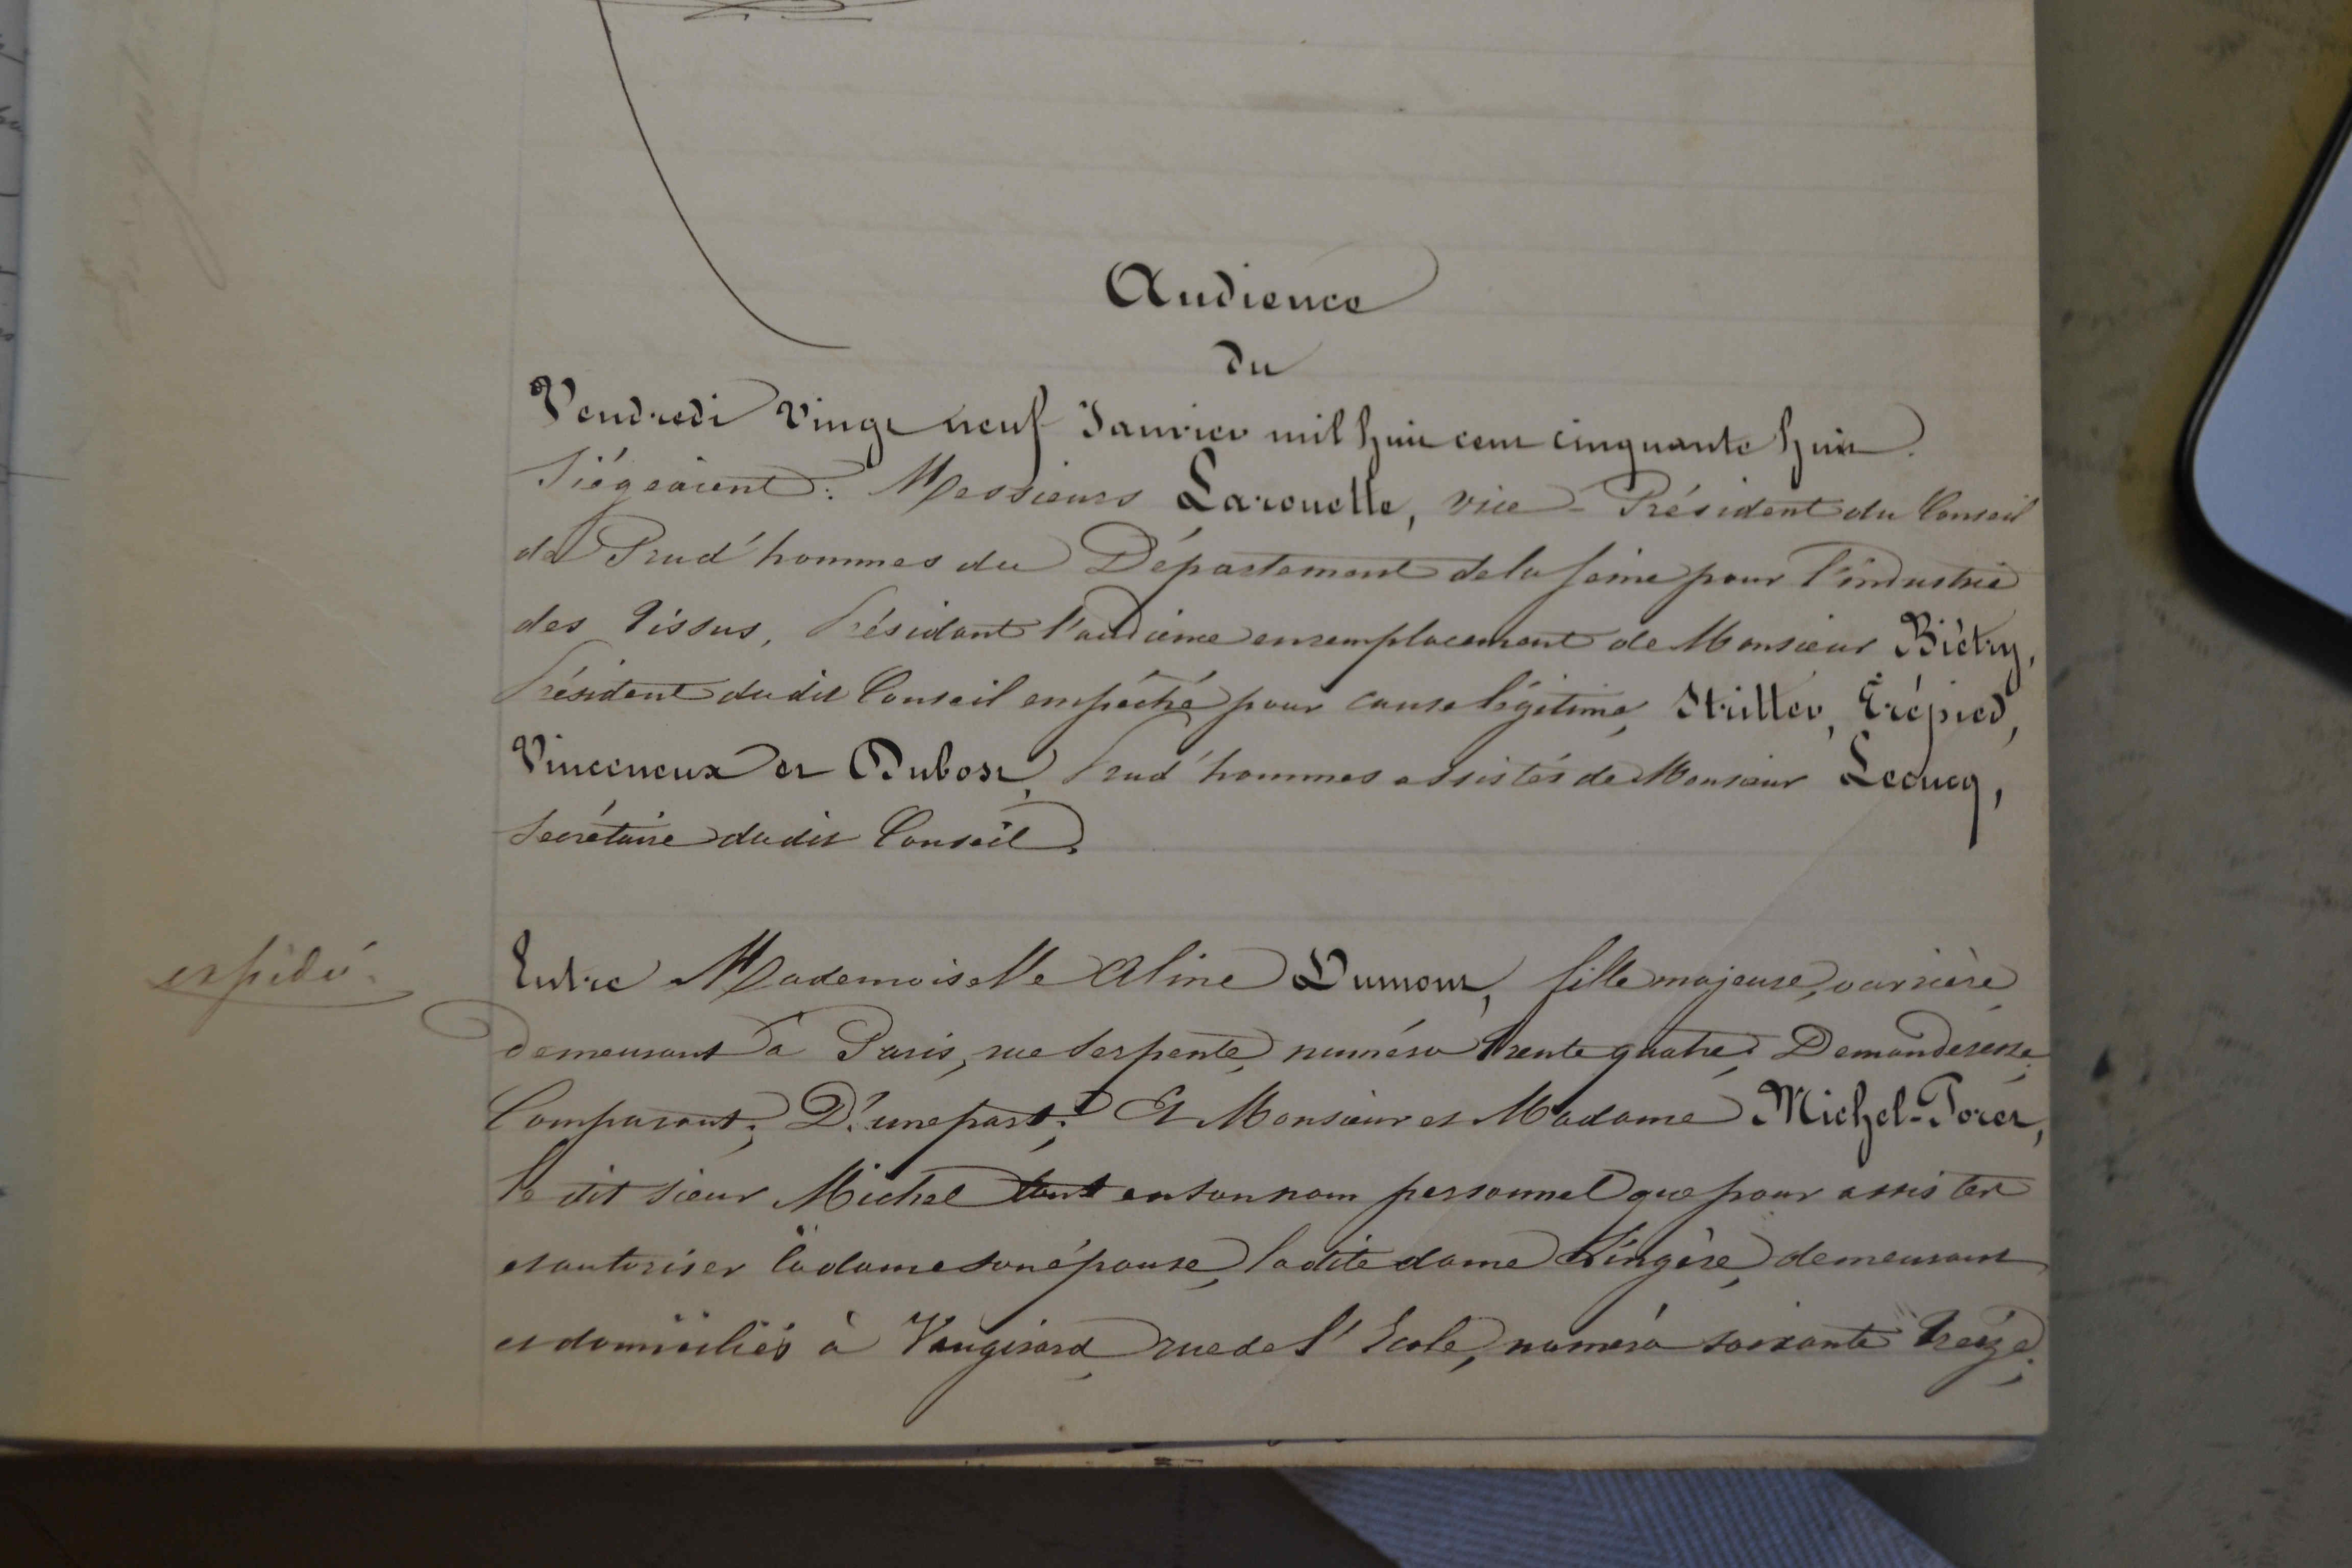 Audience
du
Vendredi vingt neuf Janvier mil huit cent cinquante huit.
Siégeaient : Messieurs Larouette, vice-Président du Conseil
de Prud'hommes du Département de la Seine pour l'industrie
des Tissus, Présidant l'audience en remplacement de Monsieur Biétry,
Président dudit Conseil empêché pour cause légitime, Stritter, Trépied,
Vinceneux et Dubosc, Prud'hommes assistés de Monsieur Lecucq,
Secrétaire dudit Conseil.
expédié.
Entre Mademoiselle Aline Dumont, fille majeure, ouvrière
demeurant à Paris, rue Serpente, numéro trente quatre, Demanderesse,
Comparant ; D'une part ; Et Monsieur et Madame Michel-Poret,
le dit sieur Michel tant en son nom personnel que pour assister
et autoriser la dame son épouse, la dite dame Lingère, demeurant
et domiciliés à Vaugirard, rue de l'Ecole, numéro soixante treize ;